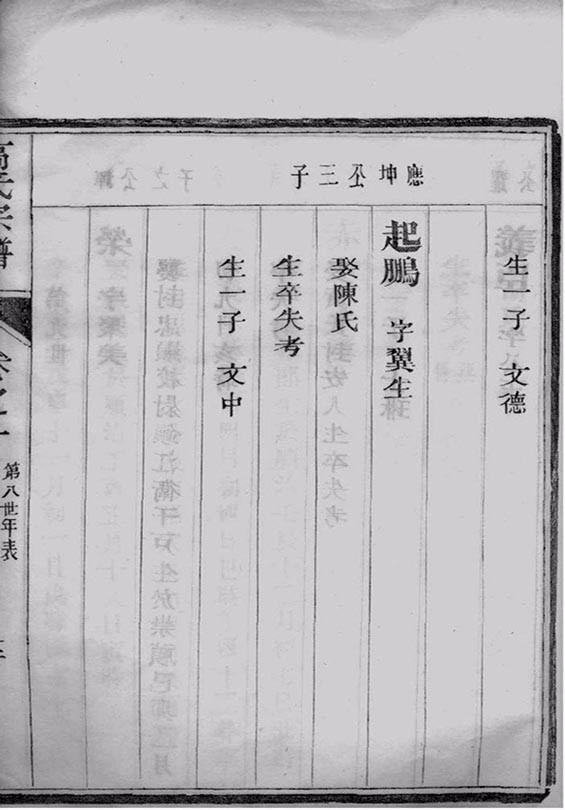 應坤公三子
生一子 文德
起鵬 字翼生
娶陳氏
生卒失考
生一子 文中
高氏宗譜
第八世年表